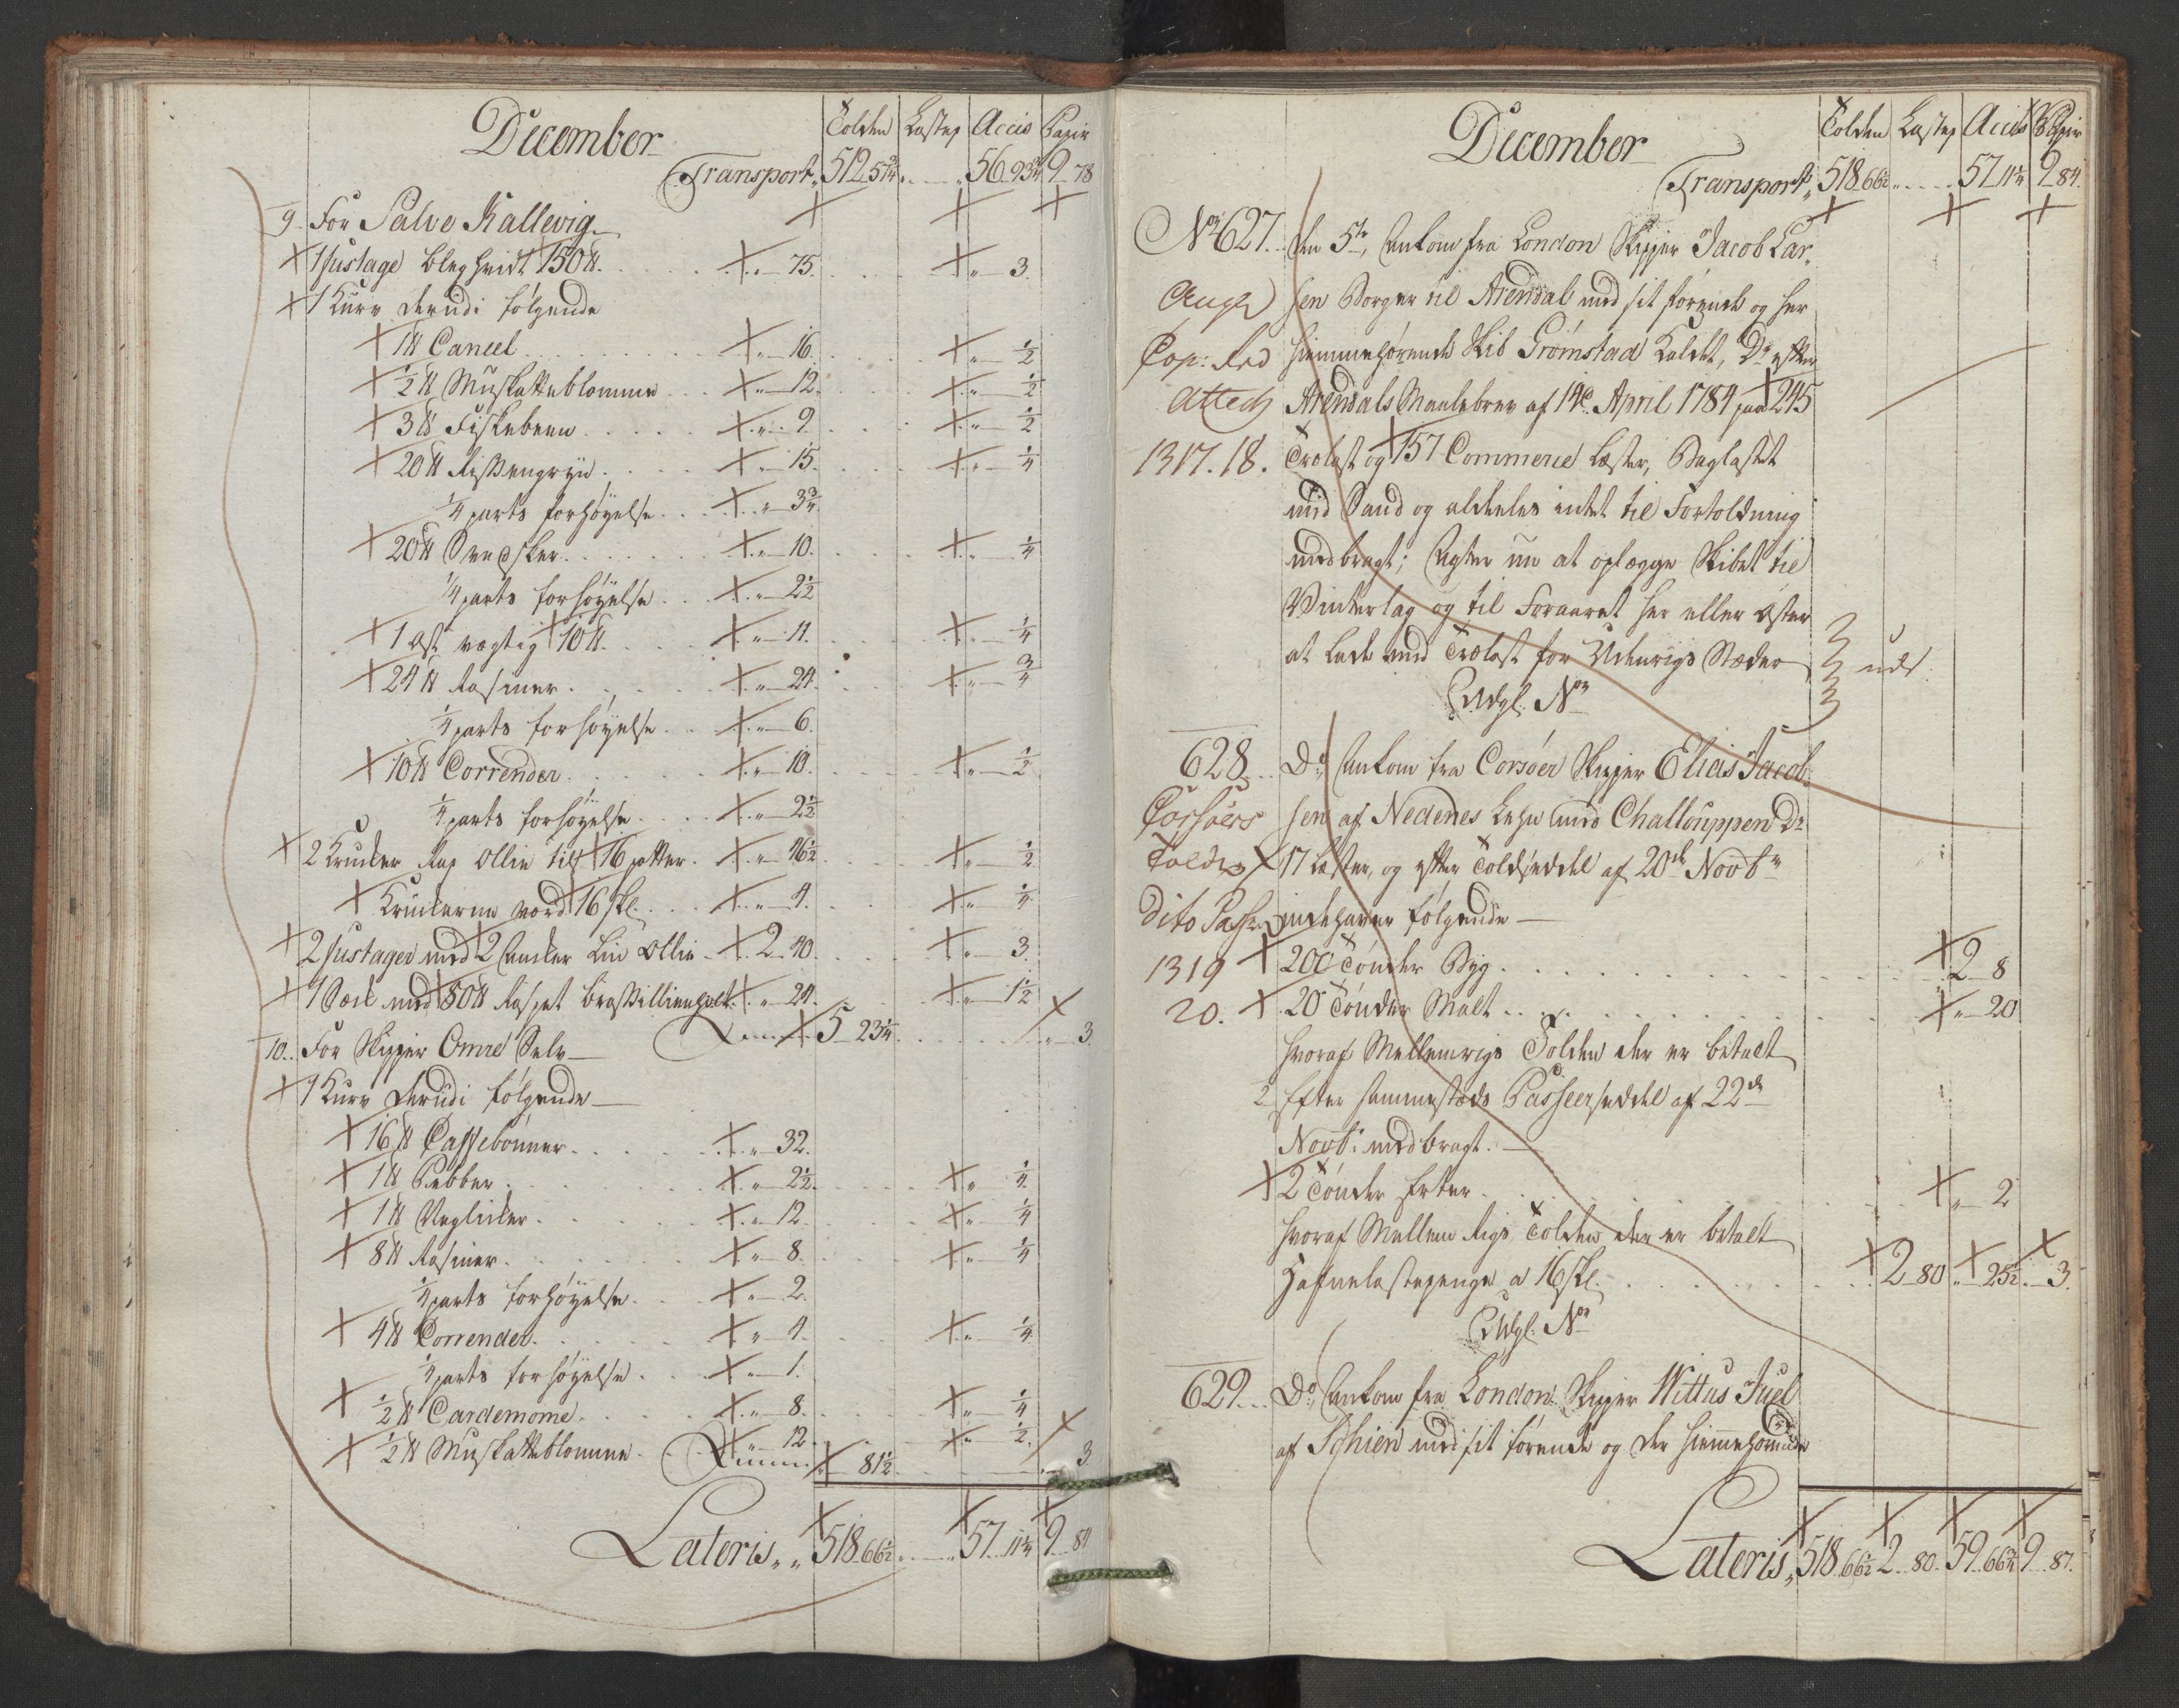 December
Tolden Lastep Accis Papir
Transport „ 512 57¾ „ 56 93¾ 9 78
9. For Salve Kallevig
1 fustage bleghvidt 150 ℔ „ 75. „ 3.
1 Kurv derudi følgende
1 ℔ Caneel „ 16. „ ½
½ ℔ Muskatteblomme „ 12. „ ½
3 ℔ Fiskebeen „ 9. „ ½
20 ℔ Rissengryn „ 15. „ ¼
¼ parts forhøyelse „ 3¾
20 ℔ Svedsker „ 10. „ ¼
¼ parts forhøyelse „ 2½
1 Ost vægtig 10 ℔ „ 11. „ ¼
24 ℔ Rosiner „ 24. „ ¾
¼ parts forhøyelse „ 6.
10 ℔ Corrender „ 10. „ ½
¼ parts forhøyelse „ 2½
2 Krucker Rap Ollie til 16 potter „ 16½ „ ½
Kruckerne værd 16 sk. „ 4. „ ¼
2 fustager med 2 Ancker Lin Ollie 2 40. „ 3.
1 Sæck med 80 ℔ Raspet brasillienholt „ 24. „ 1½
5 23¼ „ 3.
10. For Skipper Omre Selv
1 Kurv derudi følgende
16 ℔ Caffebønner „ 32.
1 ℔ Pebber „ 2½ „ ¼
1 ℔ Negliker „ 12. „ ¼
8 ℔ Rosiner „ 8. „ ¼
¼ parts forhøyelse „ 2.
4 ℔ Corrender „ 4. „ ¼
¼ parts forhøyelse „ 1.
½ ℔ Cardemome „ 8. „ ¼
½ ℔ Muskatteblomme „ 12. „ ½
„ 81½ „ 3.
Lateris „ „ 518 66½ „ 57 11¼ 9 84
December
Tolden Lastep Accis Papir
Transport „ 518 66½ „ 57 11¼ 9 84.
No 627. Den 5te, Ankom fra London Skipper Jacob Lar-
sen Borger til Arendal med sit førende og her
Cop: hiemmehørende Skib Grømstad Kaldet, Dr. efter
Attest Arendals Maalebrev af 14de April 1784 paa 245
1317. 18. Trælast og 157 Commerce Læster, Baglastet
med Sand og aldeeles intet til Fortoldning
medbragt; Agter nu at oplægge Skibet til
Vinterlag og til Foraaret her eller Øster
at lade med Trælast for Udenrigs Stæder
udf.
Udgl. No
628. Do Ankom fra Corsøer Skipper Elias Jacob-
Corsøers sen af Nedenes Lehn med Chalouppen Dr.
Toldz 17 Læster, og efter Toldseddel af 20de Novbr
Dito Passz indehaver følgende
1319 200 Tønder Byg 2 8
20. 20 Tønder Malt „ 20
hvoraf Mellemrigs Tolden der er betalt
2 Efter sammestæds Passeerseddel af 22de
Novbr. medbragt.
2 Tønder Erter „ 2
hvoraf Mellem Rigs Tolden der er betalt
Hafnelastepenge a 16 sk. 2 80 „ 25½ „ 3.
Udgl. No
629. Do Ankom fra London Skipper Wittus Juel
af Schien med sit førende og der hiemmehørende
Lateris „ 518 66½ 2 80. 59 66¾ 9 87.